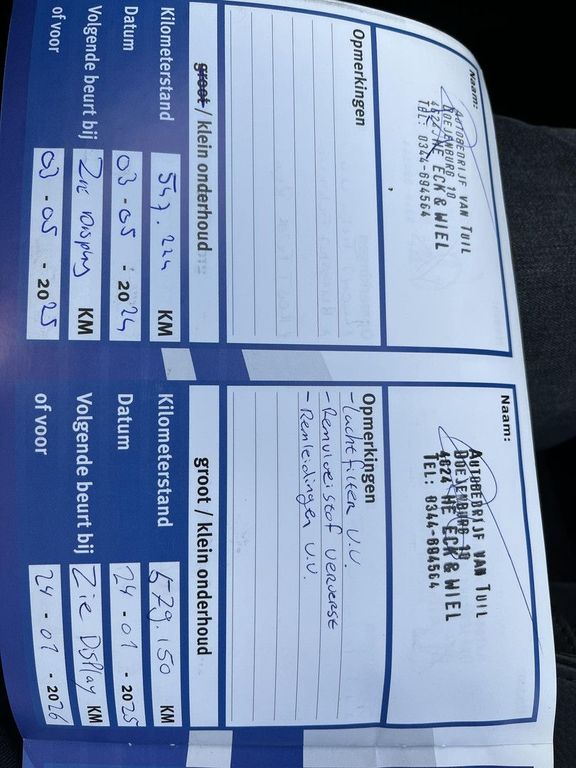 Naam:
AUTOBEDRIJF VAN TUIL
DOEJENBURG 10
4024 HE ECK & WIEL
TEL: 0344-694564
Opmerkingen
groot / klein onderhoud
Kilometerstand 547.224 KM
Datum 03 - 05 - 2024
Volgende beurt bij Zie Display KM
of voor 03 - 05 - 2025
Naam:
AUTOBEDRIJF VAN TUIL
DOEJENBURG 10
4024 HE ECK & WIEL
TEL: 0344-694564
Opmerkingen
- Luchtfilter v.v.
- Remvloeistof ververst
- Remleidingen v.v.
groot / klein onderhoud
Kilometerstand 579.150 KM
Datum 24 - 01 - 2025
Volgende beurt bij Zie Display KM
of voor 24 - 01 - 2026